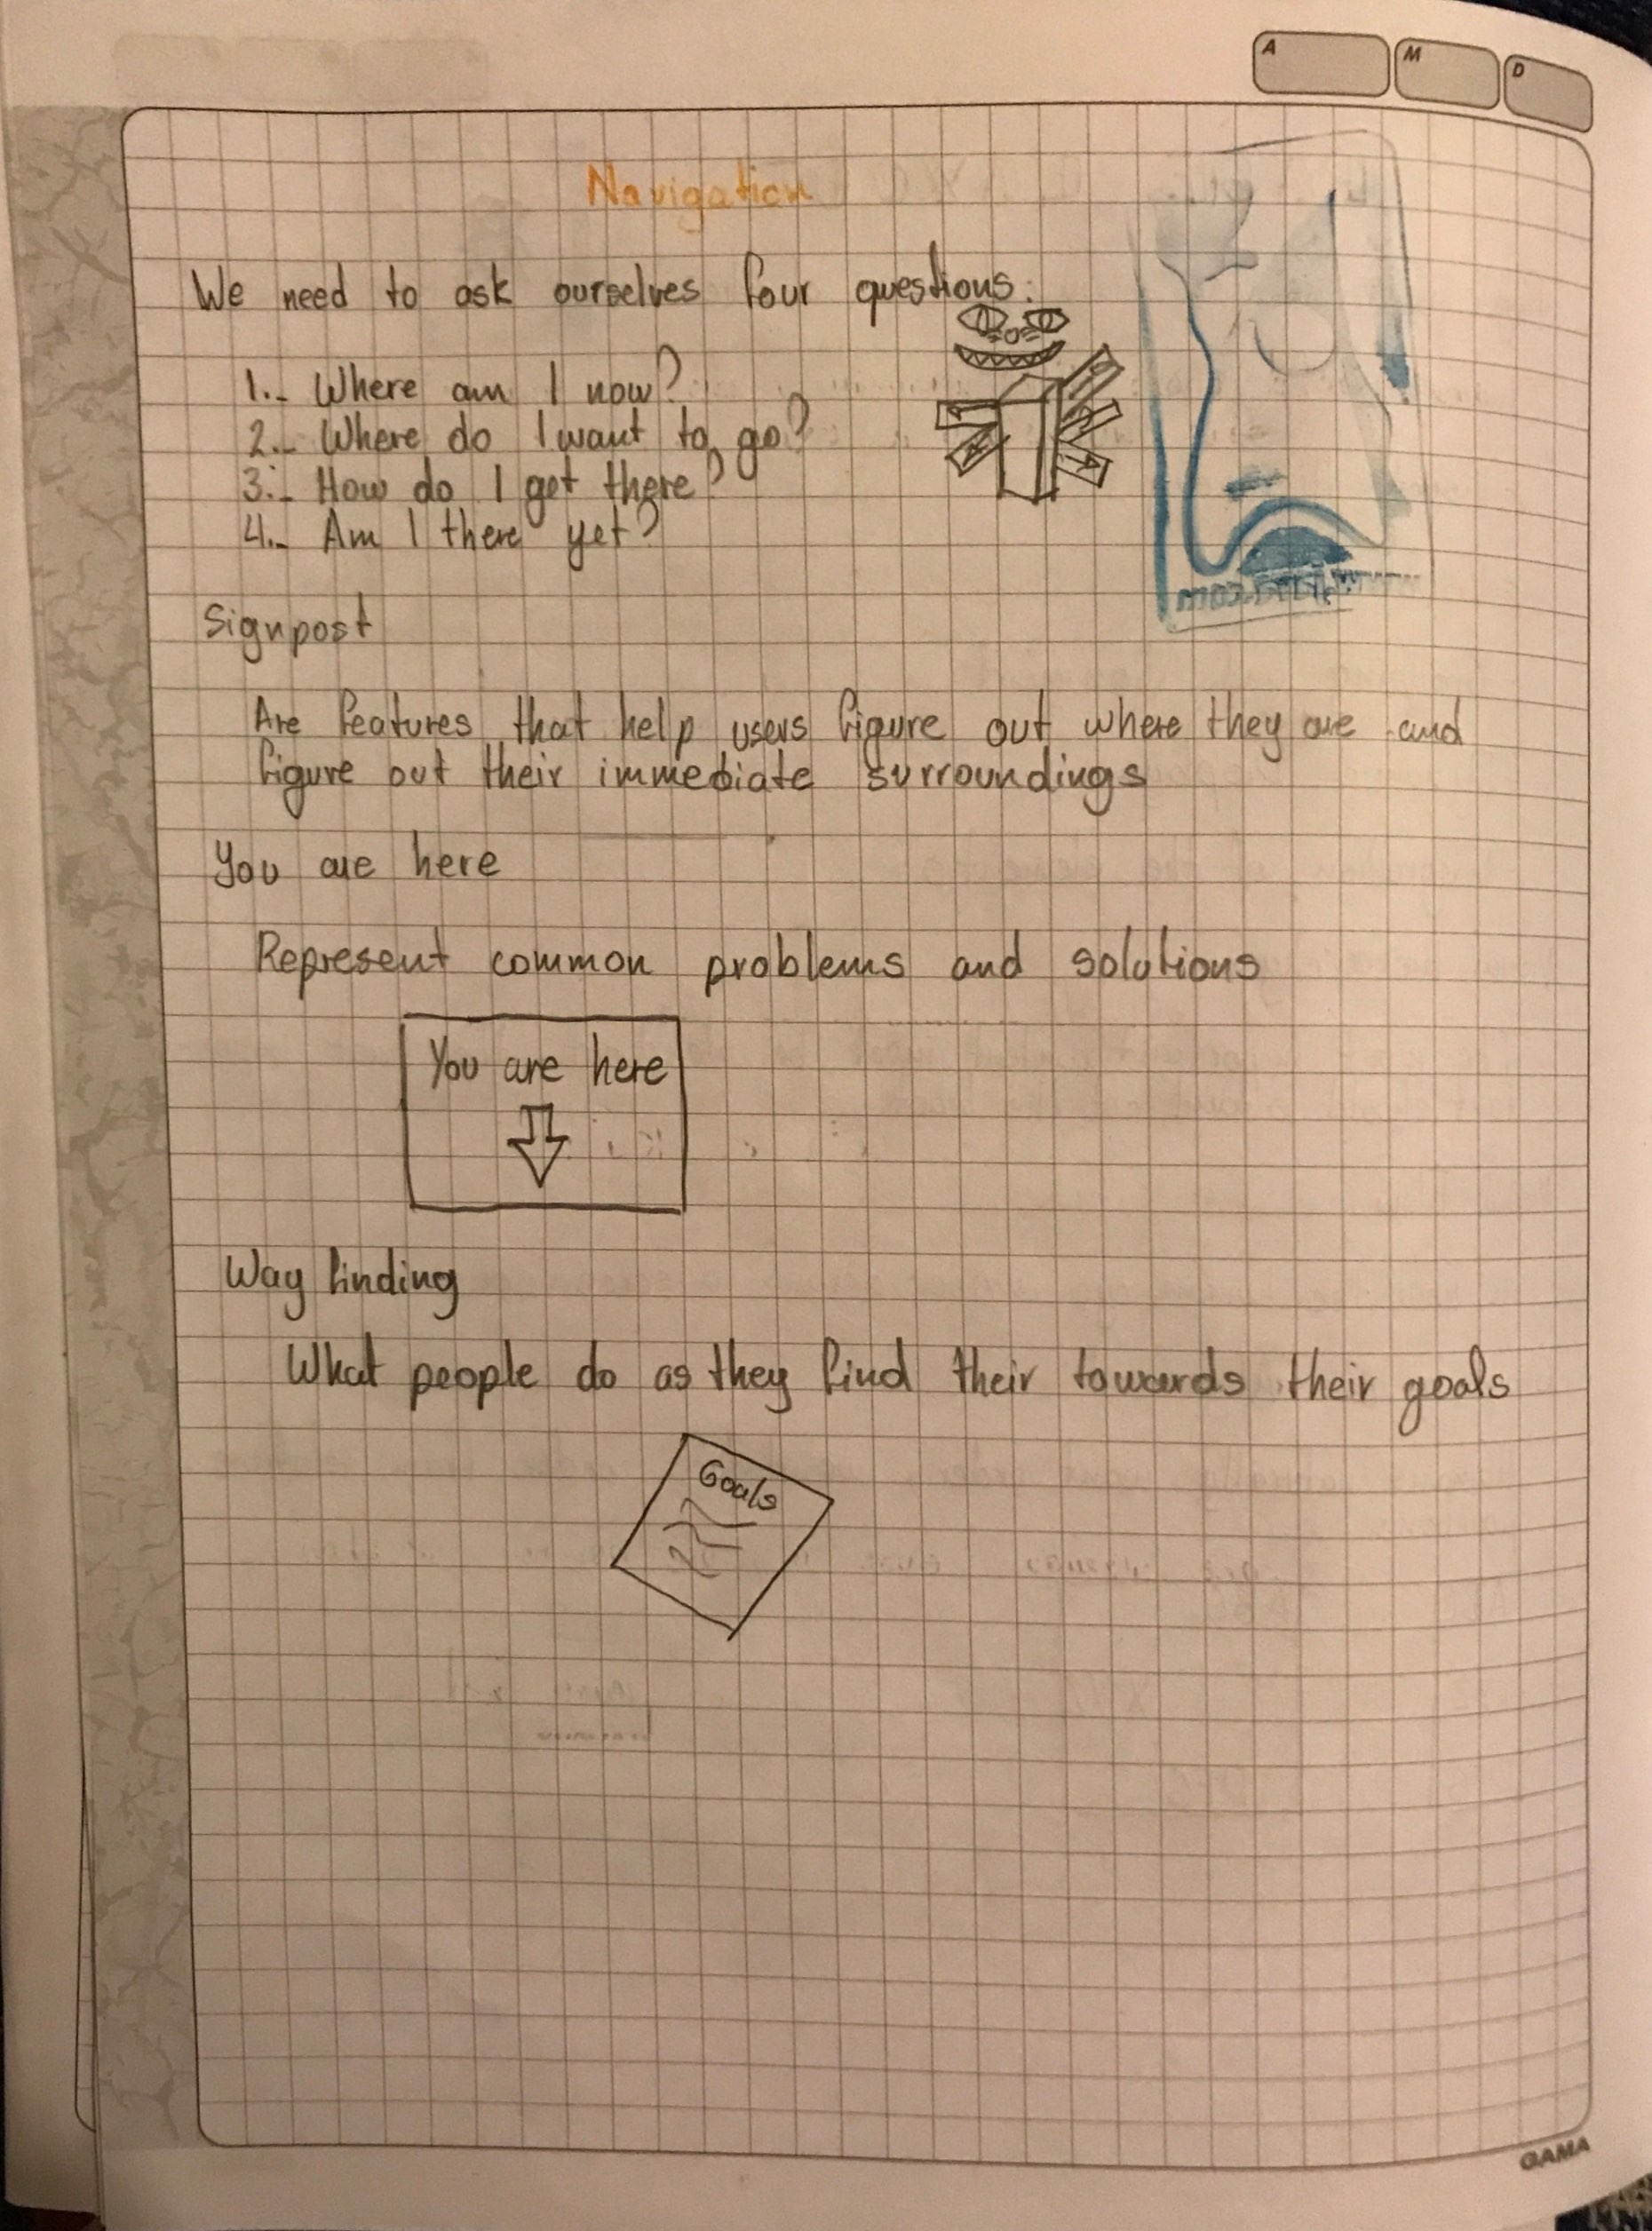 A M D
Navigation
We need to ask ourselves four questions:
1.- Where am I now?
2.- Where do I want to go?
3.- How do I get there?
4.- Am I there yet?
Signpost
Are features that help users figure out where they are and
figure out their immediate surroundings
You are here
Represent common problems and solutions
You are here
Way finding
What people do as they find their towards their goals
Goals
GAMA